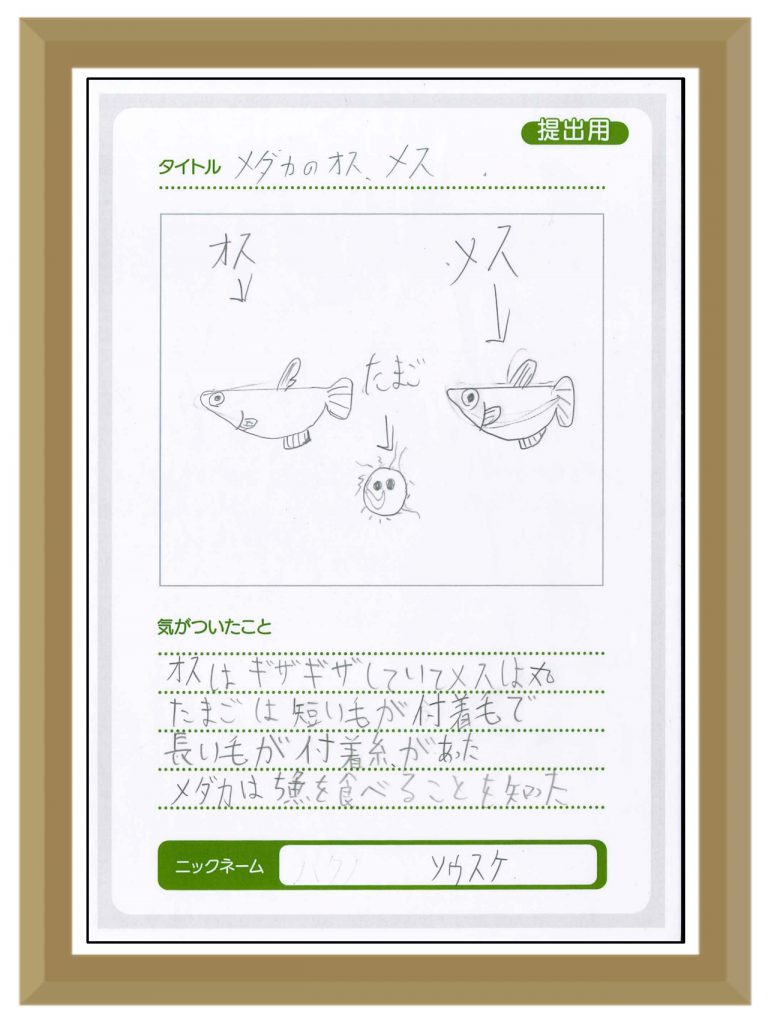 提出用
タイトル メダカのオス、メス
オス
メス
たまご
気がついたこと
オスはギザギザしていてメスは丸
たまごは短い毛が付着毛で
長い毛が付着糸、があった
メダカは魚を食べることを知った
ニックネーム ソウスケ